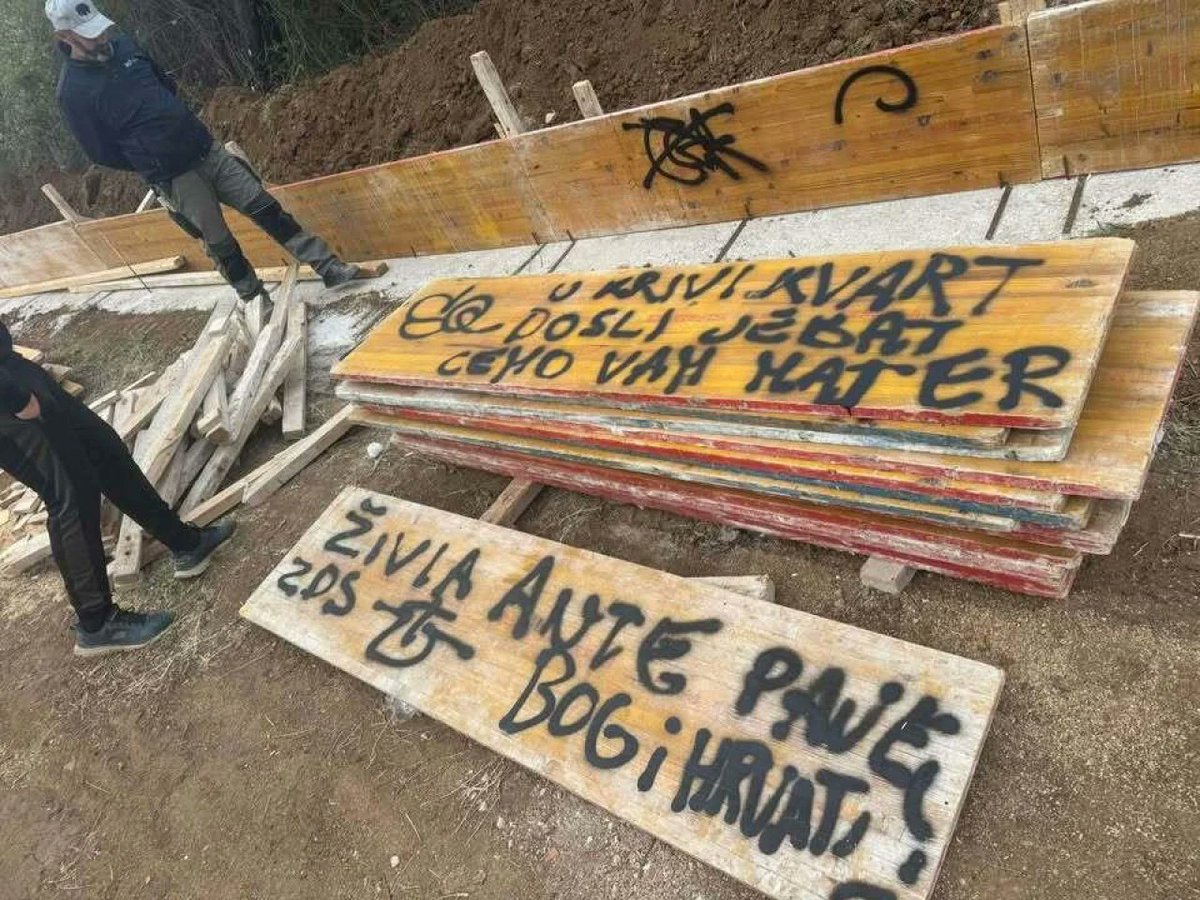 U KRIVI KVART
DOŠLI JEBAT
ĆEMO VAM MATER
ŽIVIA ANTE PAVE
ZDS
BOG i HRVATi